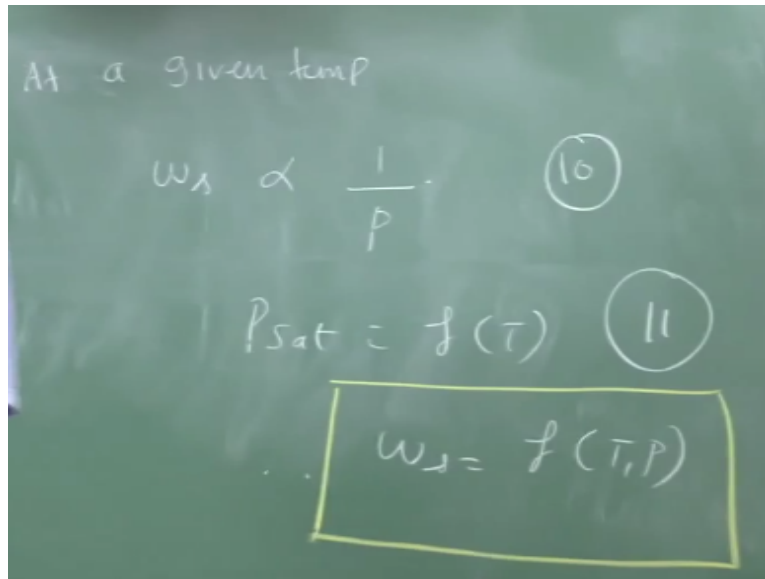 At a given temp
ωs ∝ 1/P (10)
Psat = f(T) (11)
∴ ωs = f(T,P)